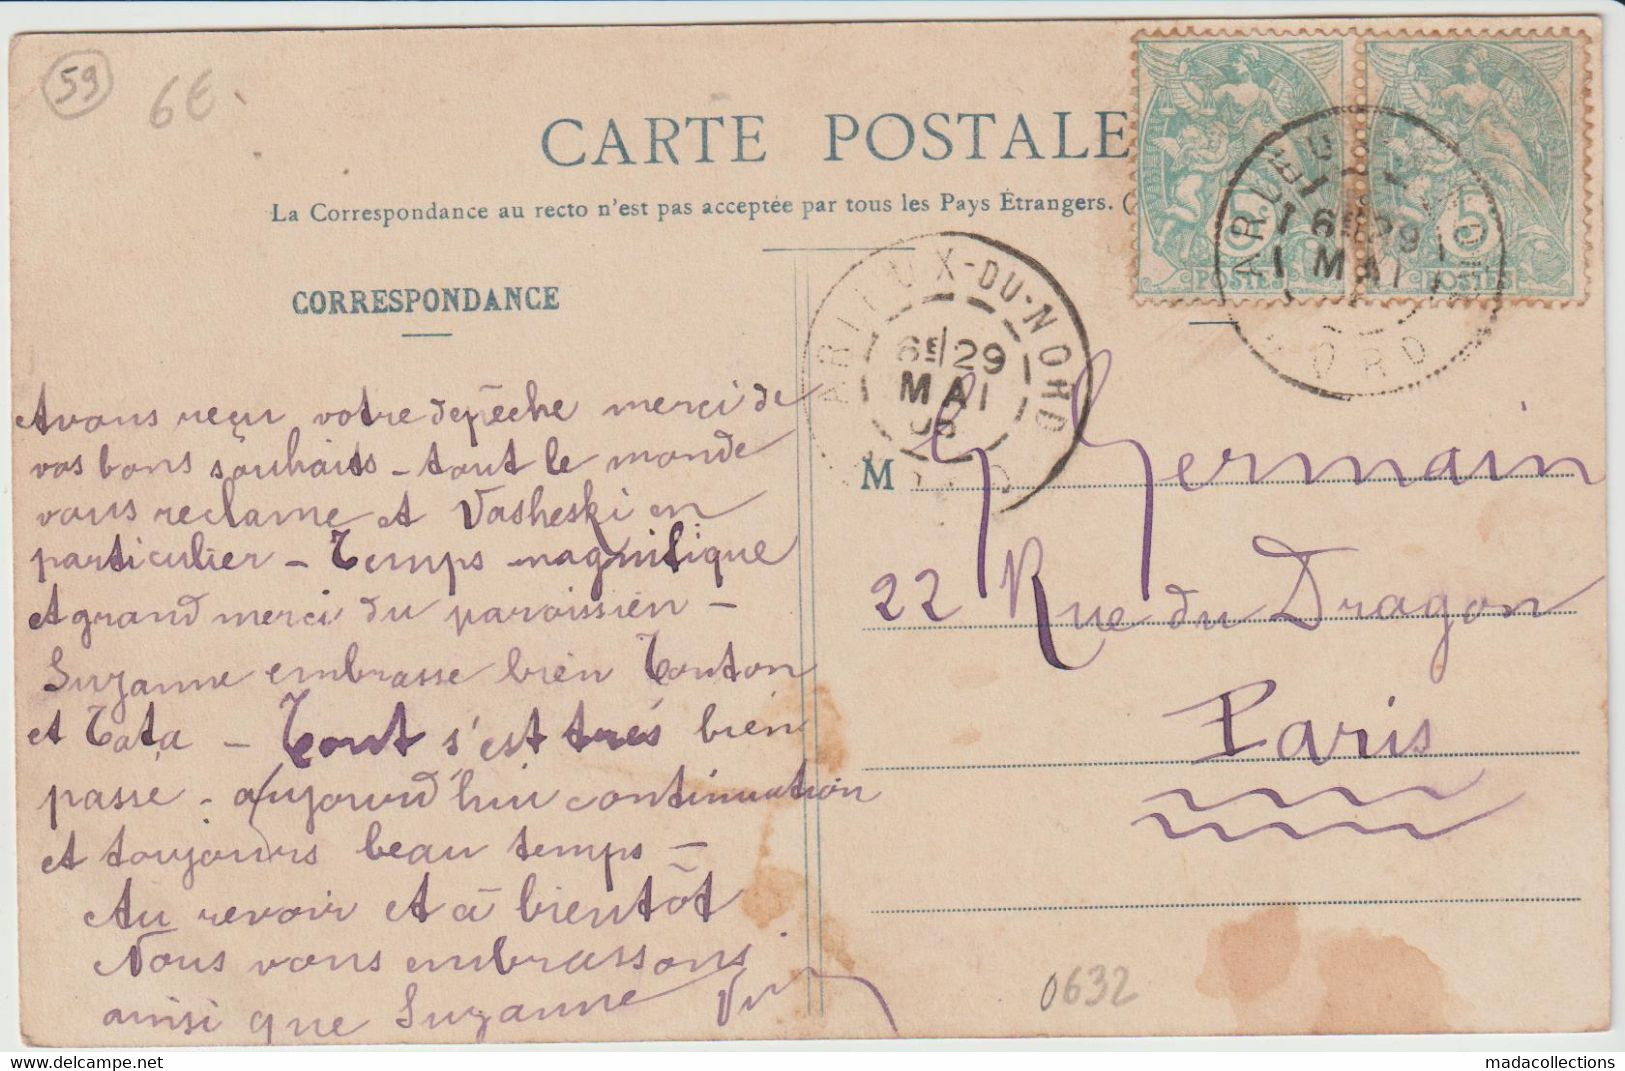 59
6€
CARTE POSTALE
La Correspondance au recto n'est pas acceptée par tous les Pays Étrangers. (
CORRESPONDANCE
ARLEUX-DU-NORD
6E 29
MAI
ARLEUX
6E 29
MAI
NORD
5
POSTES
5
POSTES
Avons reçu votre depêche merci de
vos bons souhaits - tout le monde
vous reclame et Vasheski en
particulier - Temps magnifique
et grand merci du paroissien -
Suzanne embrasse bien Tonton
et Tata - Tout s'est très bien
passé - aujourd'hui continuation
et toujours beau temps -
Au revoir et à bientôt
Nous vous embrassons
ainsi que Suzanne
M G Germain
22 Rue du Dragon
Paris
0632
https://www.delcampe.net
madacollections